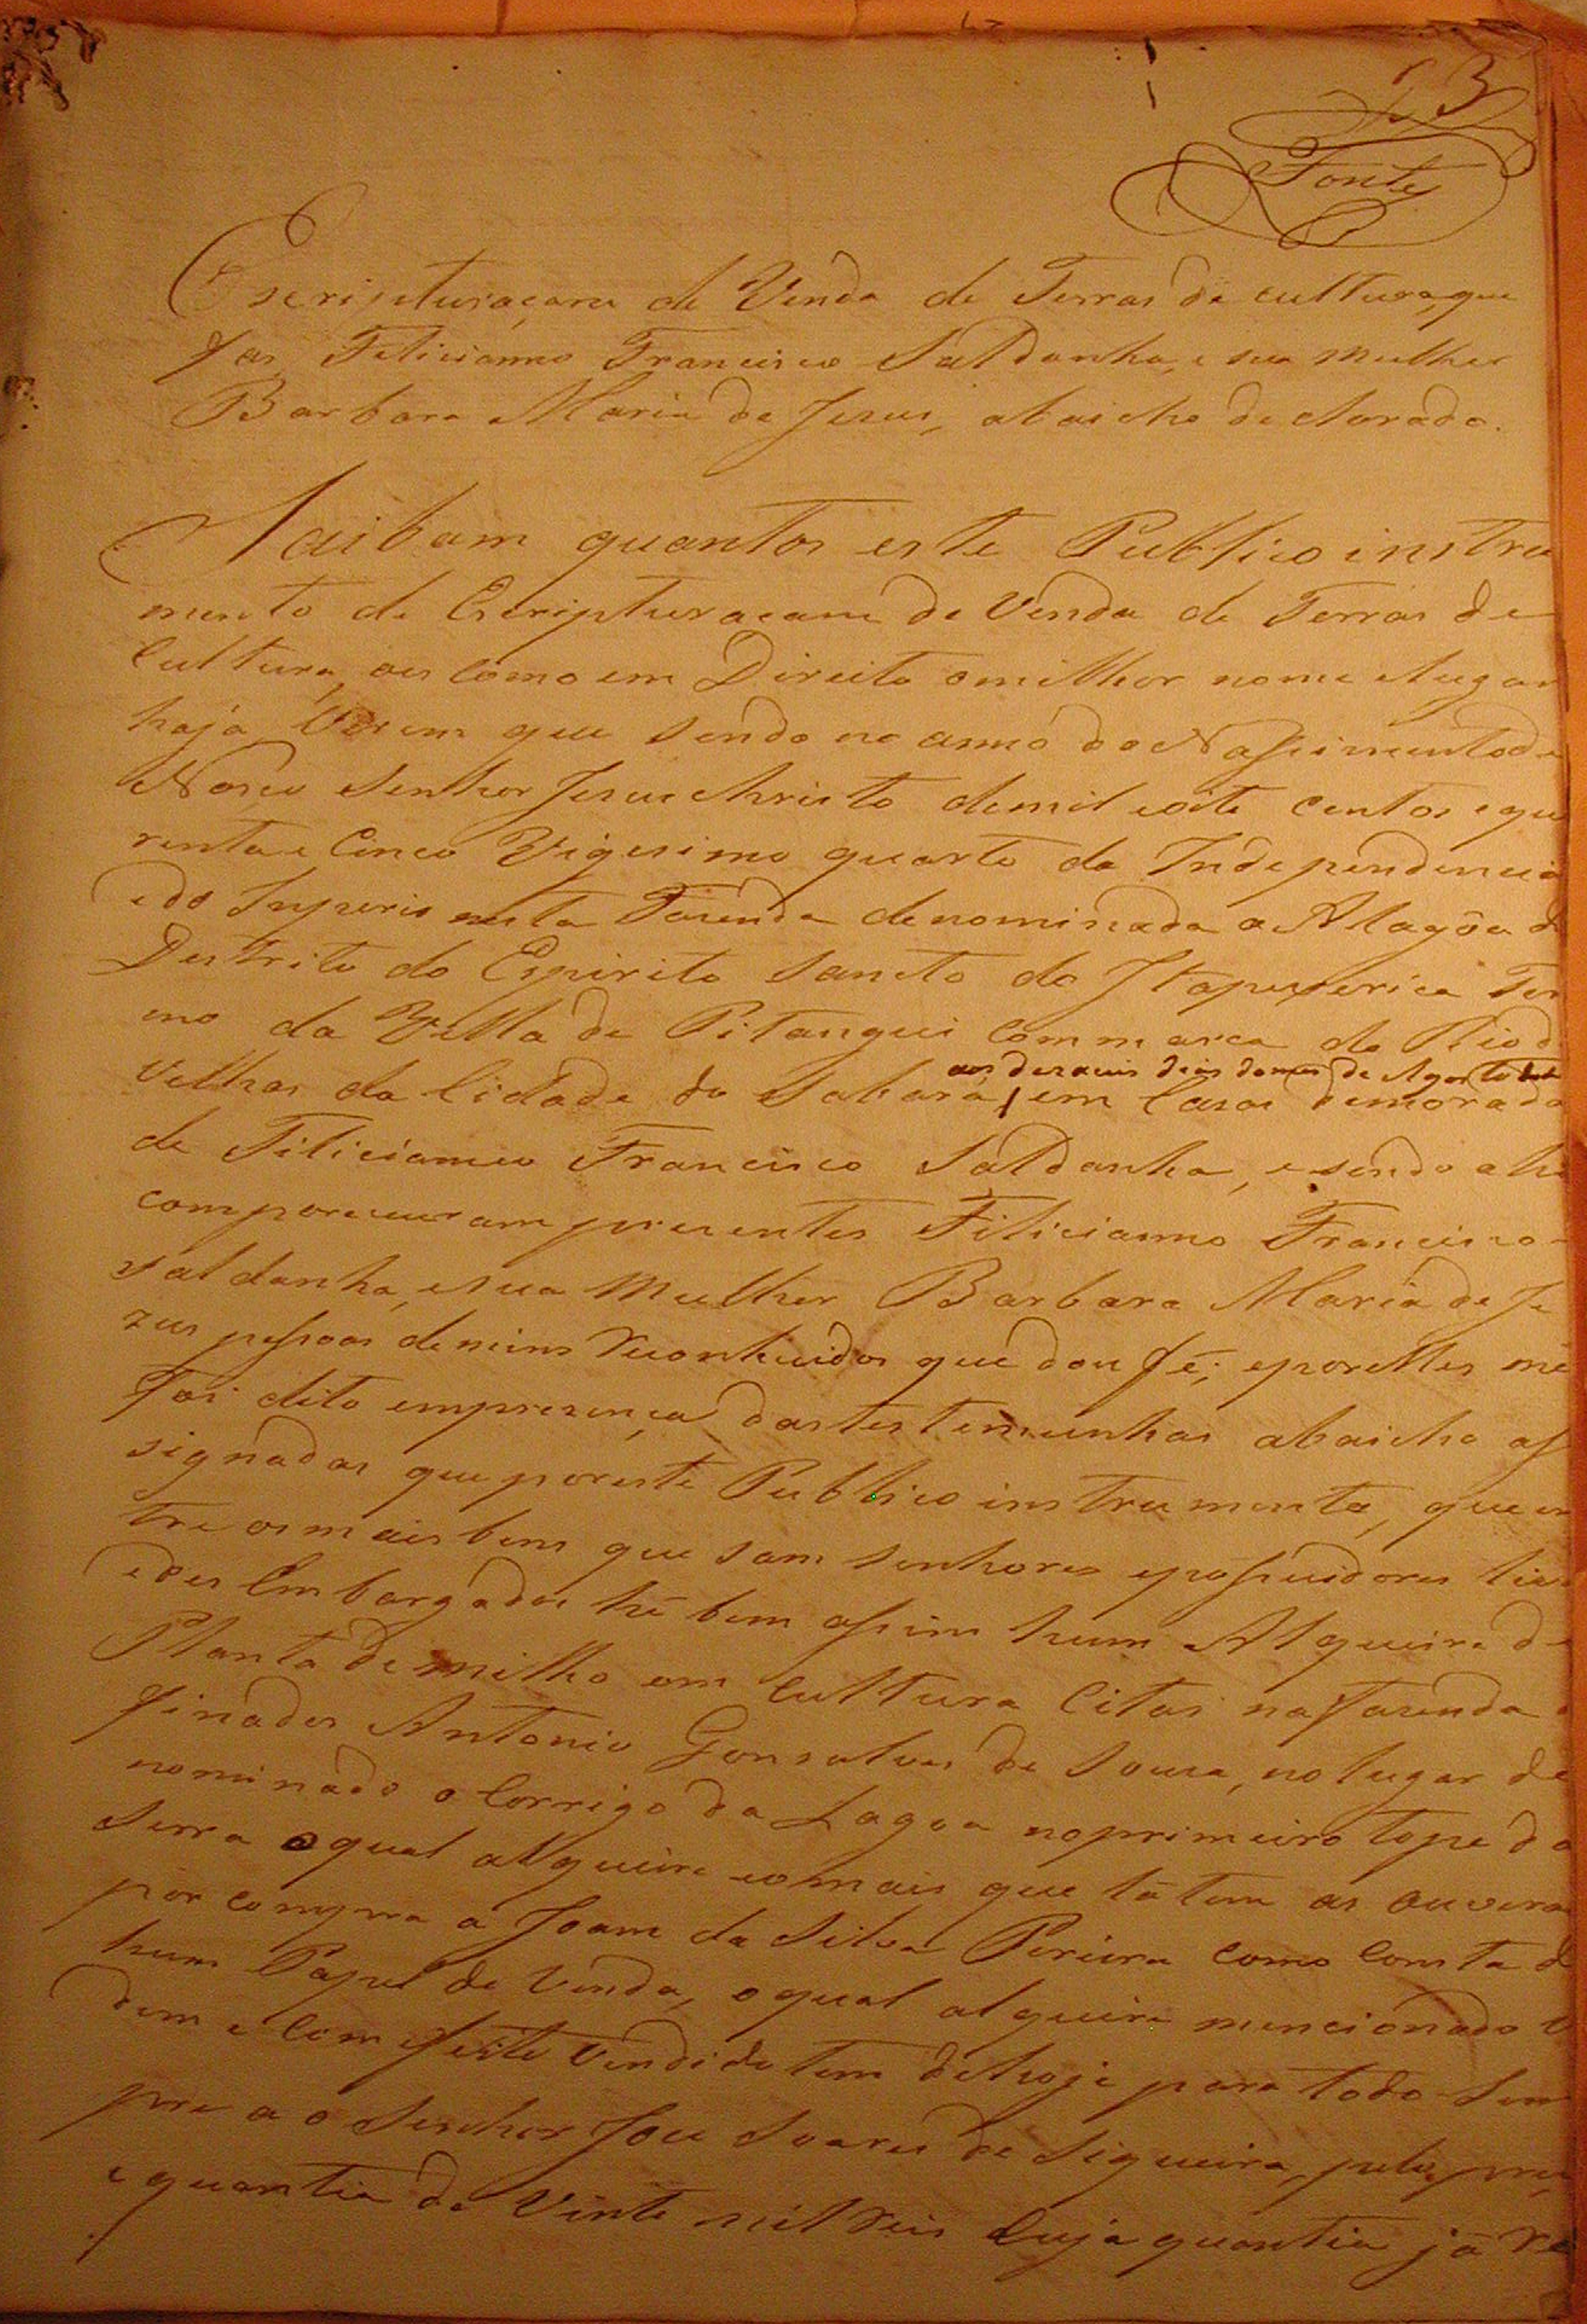 3
Fontes
Escripturaçam de Venda de Terras de cultura, que
fas Felicianno Francisco Saldanha, e sua Mulher
Barbara Maria de Jesus, abaicho declarada.
Saibam quantos este Publico instru
mento de Escripturacam de Venda de Terras de
Cultura, ou como em Direito omilhor nome elugar
haja Virem que sendo no anno do Nascimento de
Nosso Senhor Jesus Christo demil eoito centos e qua
renta e Cinco Vigesimo quarto da Independencia
edo Inperio nesta Fazenda denominada a Alagôa do
Destrito do Espirito Sancto do Itapeserica Ter
mo da Villa de Pitangui Commarca do Rio d
aos dezaseis dias domes de Agosto
Velhas da Cidade do Sabará, em Casas demorada
de Filicianno Francisco Saldanha, e sendo ahi
compareceuram presentes Filicianno Francisco
Saldanha, esua Mulher Barbara Maria de Je
zus pessoas demim reconhecidos que dou fé; eporelles me
foi dito empresença dastestemunhas abaicho as
signadas que poreste Publico instrumento, que en
tre osmais bens que sam senhores epossuidores liv
edes Embargados hé bem assim hum Alqueire de
Planta demilho em Cultura Citas nafazenda d
finados Antonio Gonsalves de Sousa, no lugar de
nominado o Corrigo da Lagoa noprimeiro tope da
Serra oqual alqueire eomais que lá tem as ouvera
por compra a Joam da Silva Pereira como Consta d
hum Papel de Venda, oqual alqueire mencionado V
dem e Com efeito Vendido tem dehoje para todo Sem
pre a o Senhor Jose Soares de Siqueira, pelo pre
e quantia de Vinte mil Reis Cuja quantia já re